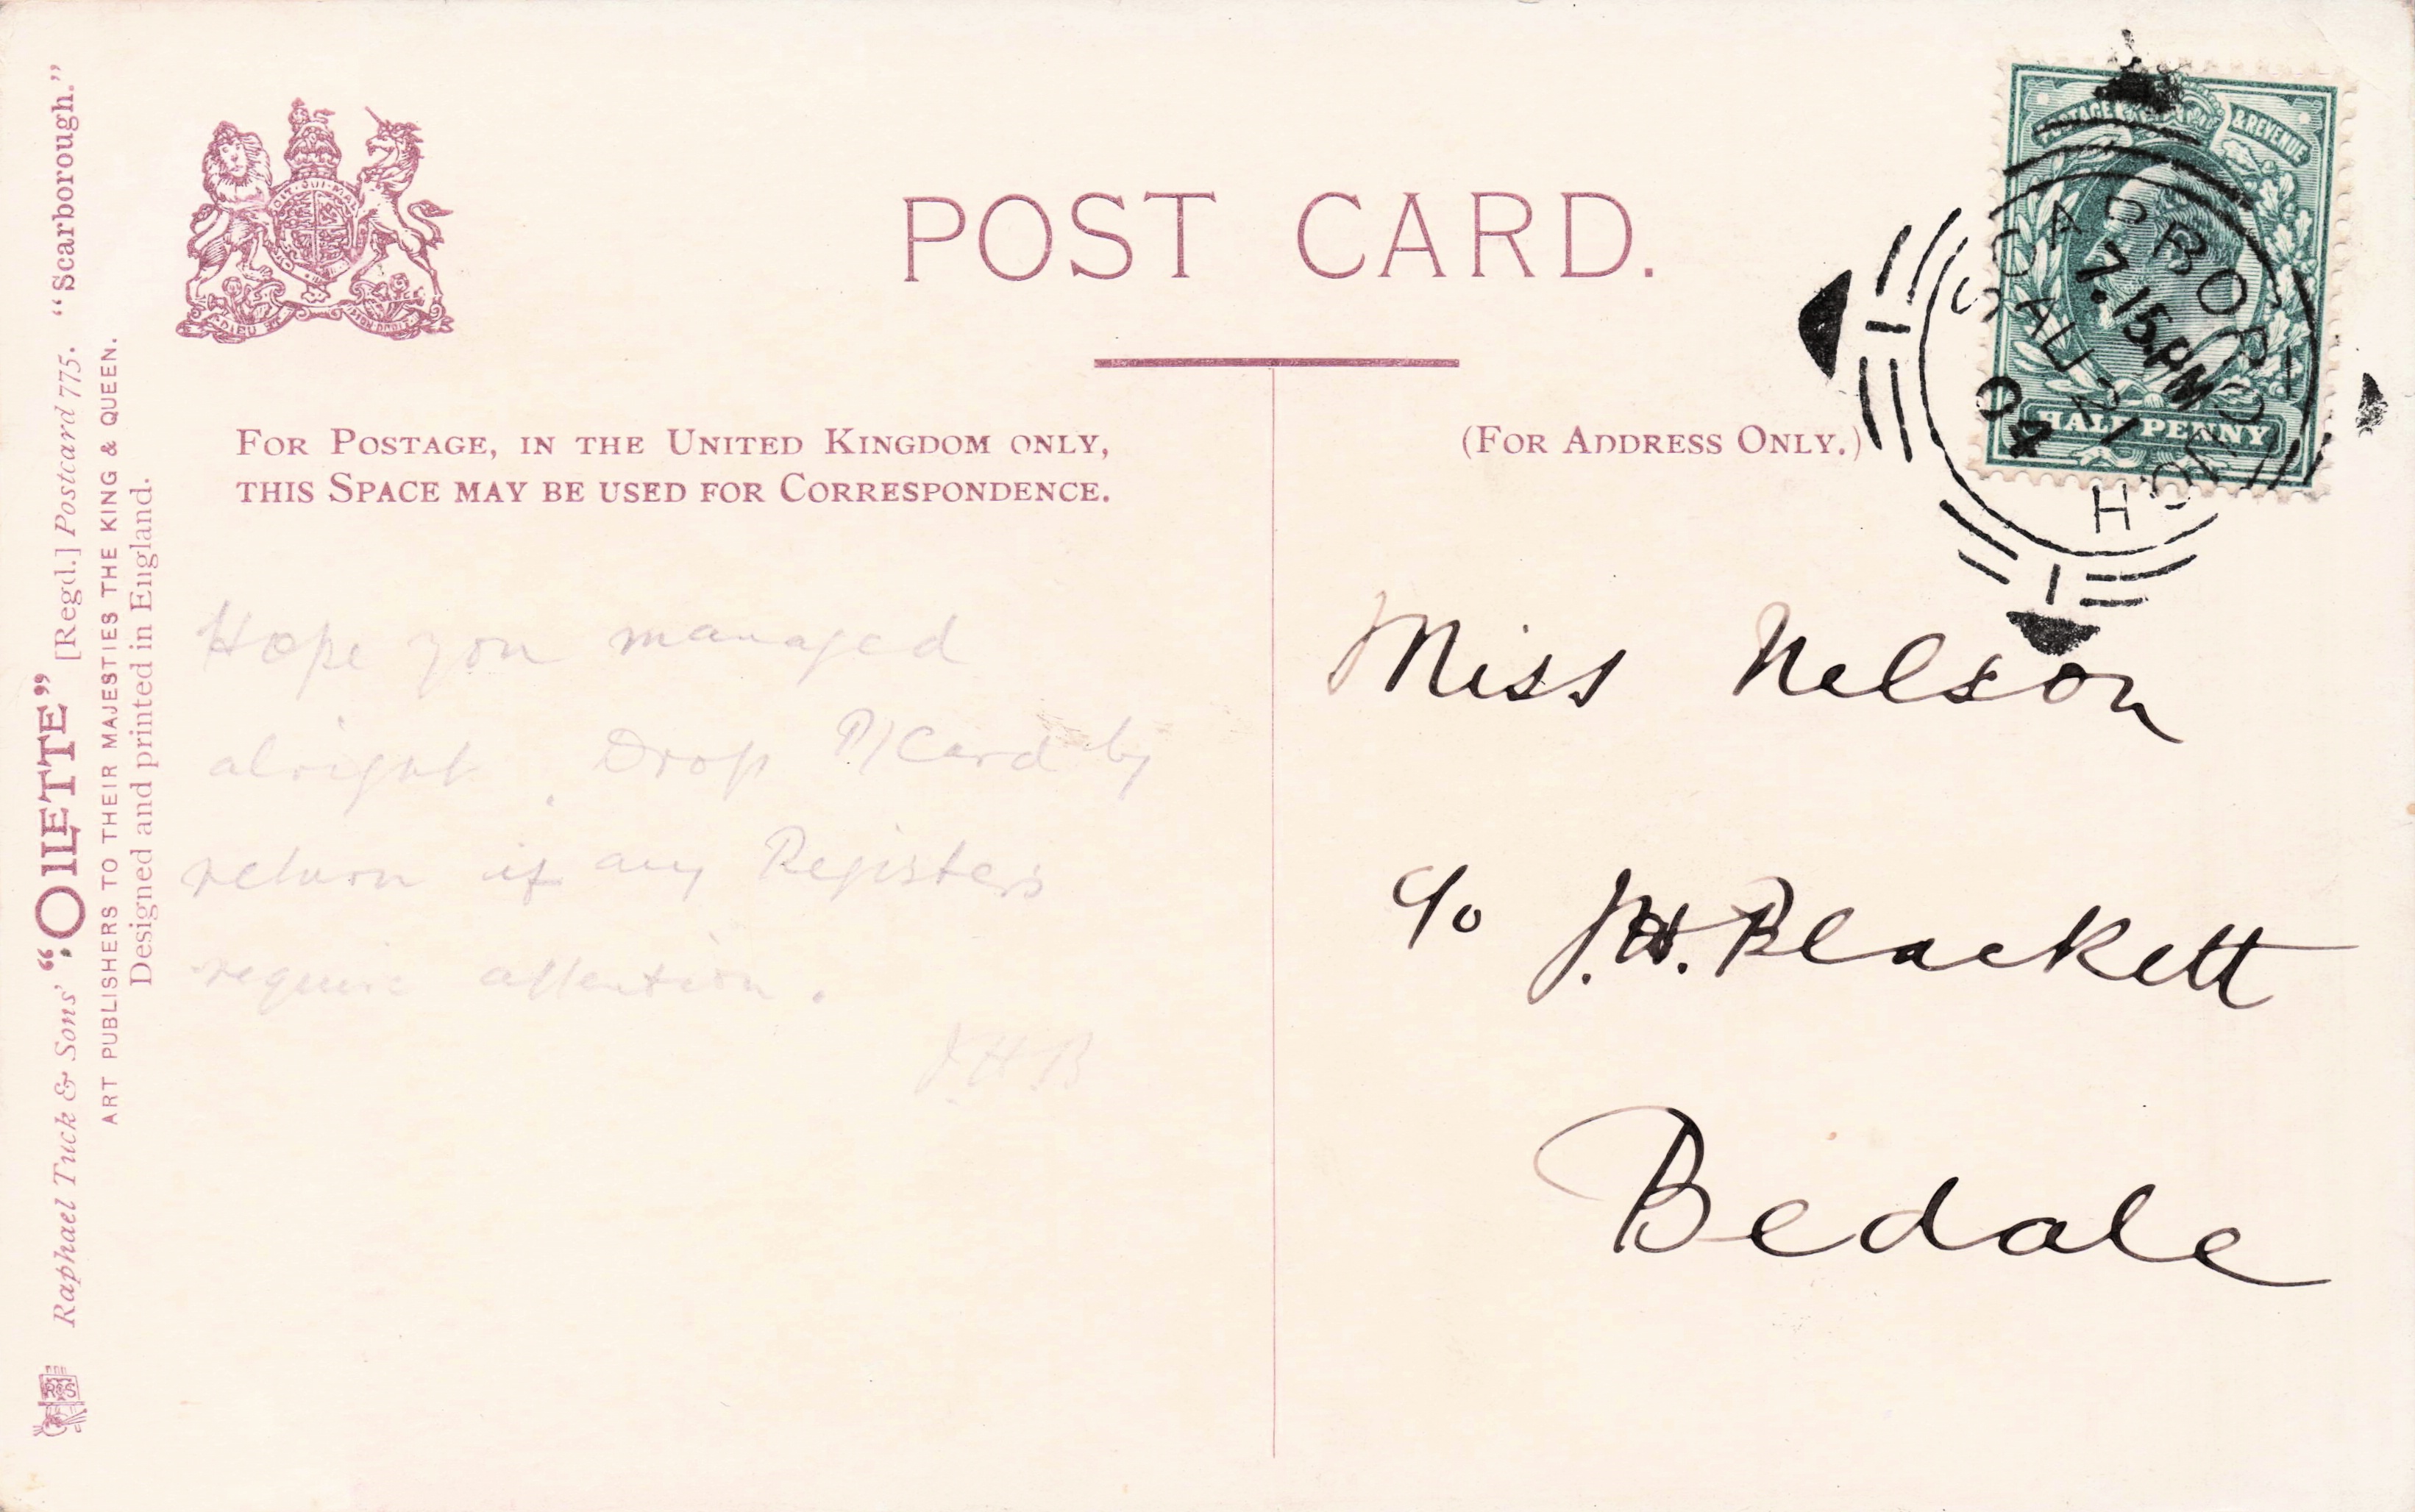 POST CARD.
FOR POSTAGE, IN THE UNITED KINGDOM ONLY,
THIS SPACE MAY BE USED FOR CORRESPONDENCE.
(FOR ADDRESS ONLY.)
Hope you managed
alright. Drop P/Card by
return if any Registers
require attention.
J.H.B
Miss Nelson
c/o J.H. Blackett
Bedale
POSTAGE & REVENUE
HALFPENNY
SCARBOROUGH
7.15PM
JU 21
04
H
Raphael Tuck & Sons' "OILETTE" [Regd.] Postcard 775. "Scarborough."
ART PUBLISHERS TO THEIR MAJESTIES THE KING & QUEEN.
Designed and printed in England.
DIEU ET MON DROIT